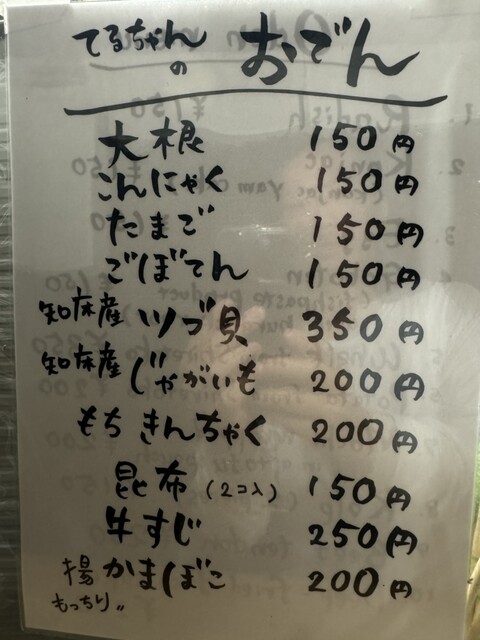 てるちゃんの おでん
大根 150円
こんにゃく 150円
たまご 150円
ごぼてん 150円
知床産 ツブ貝 350円
知床産 じゃがいも 200円
もちきんちゃく 200円
昆布(2コ入) 150円
牛すじ 250円
揚かまぼこ 200円
もっちり〃